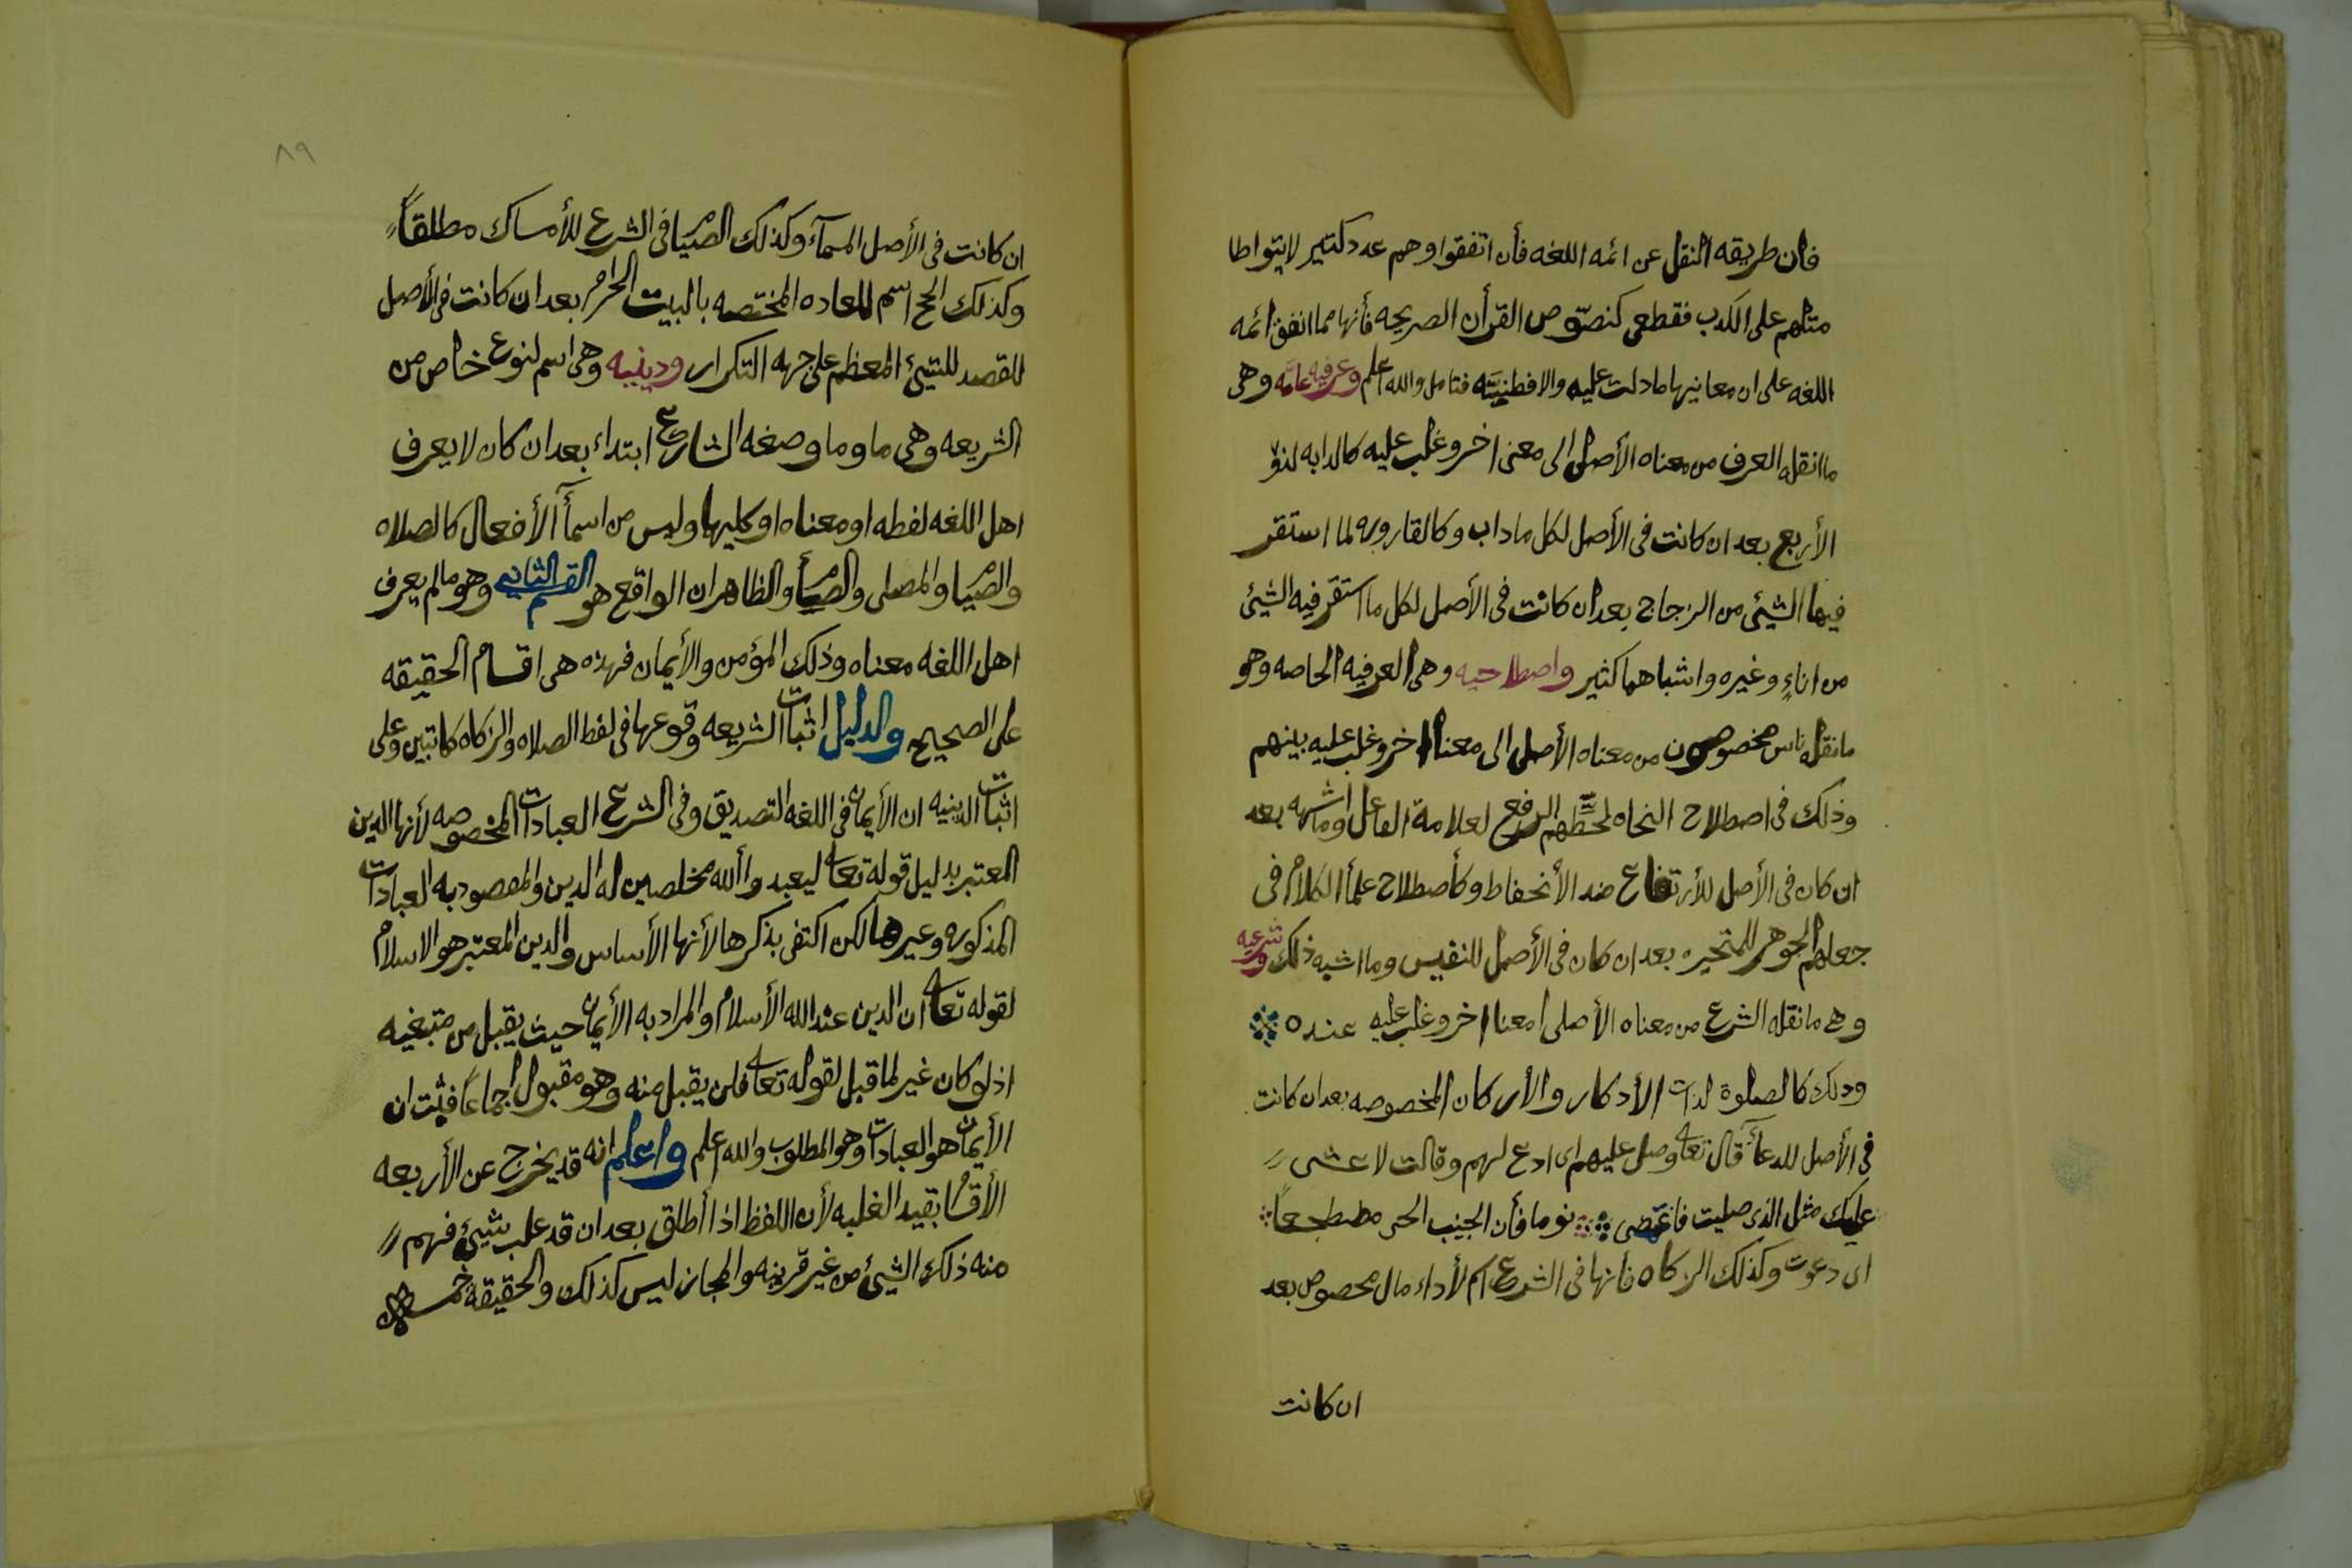 فان طريقه النقل عن ائمه اللغه فأن اتفقوا وهم عدد كثير لايتواطا
مثلهم على الكدب فقطعى كنصوص القرأن الصريحه فأنها مما اتفق ائمه
اللغه على ان معانيها مادلت عليه والا فظنيته فتامل والله اعلم وعرفيه عامه وهى
ماانقله العرف من معناه الأصلى الى معنى اخر وغلب عليه كالدابه لذو
الأربع بعد ان كانت فى الأصل لكل مادب وكالقاروره لما استقر
فيها الشيئ من الزجاج بعد ان كانت فى الأصل لكل ما استقر فيه الشيئ
من اناءٍ وغيره واشباهما كثير واصطلاحيه وهى العرفيه الخاصه وهو
مانقله ناس مخصوصون من معناه الأصلى الى معنا اخر وغلب عليه بينهم
وذلك فى اصطلاح النحاه الرفع لعلامة الفاعل وماشبهه بعد
ان كان فى الأصل للأرتفاع ضد الأنخفاط وكأصطلاح علمأ الكلام فى
جعلهم الجوهر للمتحيز بعد ان كان فى الأصل للنفيس وما اشبه ذلك وشرعيه
وهى مانقله الشرع من معناه الأصلى معنا اخر وغلب عليه عنده
وذلك كالصلوة لذات الأدكار والأركان المخصوصه بعد ان كانت
فى الأصل للدعآ قال تعا وصل عليهم اى ادع لهم وقالت لاعشى
عليك مثل الذى صليت فاغتمضى نوما فأن الجنب الحى مضطجعاً
اى دعوت وكذلك الزكاه فأنها فى الشرع اسم لأداء مال مخصوص بعد
ان كانت
٨٩
ان كانت فى الأصل المسمآء وكذلك الصيام فى الشرع للأمساك مطلقاً
وكذلك الحج اسم للعاده المختصه بالبيت الحرام بعد ان كانت فى الأصل
للقصد للشيئ المعظم على جهه التكرار ودينيه وهى اسم لنوع خاص من
الشريعه وهى ما وما وصفه الشارع ابتداء بعد ان كان لايعرف
اهل اللغه لفظه او معناه او كليهما وليس من اسمآ الأفعال كالصلاه
والصيام والمصلى والصيام والظاهر ان الواقع هو القسم الثانى وهو مالم يعرف
اهل اللغه معناه وذلك المؤمن والأيمان فهذه هى اقسام الحقيقه
على الصحيح والدليل اثبات الشريعه وقوعها فى لفظ الصلاه والزكاه كماتبين وعلى
اثبات الدينيه ان الأيمان فى اللغه التصديق وفى الشرع العبادات المخصوصه لأنها الدين
المعتبر بدليل قوله تعا ليعبدوا ألله مخلصين له الدين والمقصود به العبادات
المذكوره وغيرها لكن اكتفى بذكرها لأنها الأساس والدين المعتبر هو الاسلام
لقوله تعا ان الدين عند الله الأسلام والمراد به الأيمان حيث يقبل من متبغيه
اذ لو كان غير لما قبل لقوله تعا فلن يقبل منه وهو مقبول اجماعاً فثبت ان
الأيمان هو العبادات وهو المطلوب والله اعلم واعلم انه قد يخرج عن الأربعه
الأقسام بقيد الغلبه لأن اللفظ اذا أطلق بعد ان قد غلب بشيئ فهم
منه ذلك الشيئ من غير قرينه والمجاز ليس كذلك والحقيقه